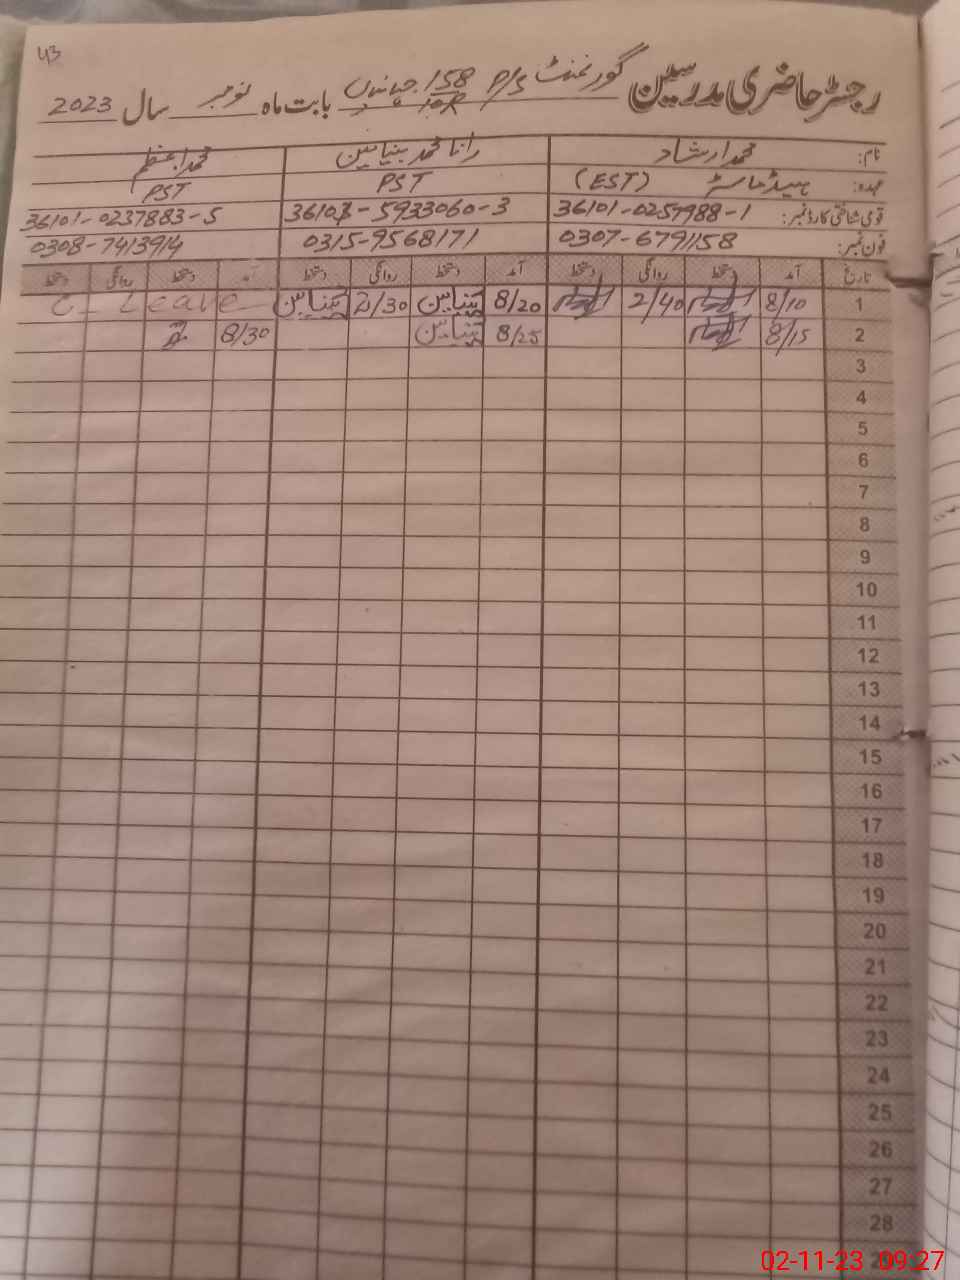 43
رجسٹر حاضری مدرسین گورنمنٹ P/S 158/10R جہانیاں بابت ماہ نومبر سال 2023
نام: محمد ارشاد رانا محمد بنیامین محمد اعظم
عہدہ: ہیڈ ماسٹر (EST) PST PST
قومی شناختی کارڈ نمبر: 36101-0257988-1 36103-5933060-3 36101-0237883-5
فون نمبر: 0307-6791158 0315-9568171 0308-7413914
تاریخ آمد دستخط روانگی دستخط آمد دستخط روانگی دستخط آمد دستخط روانگی دستخط
1 8/10 2/40 8/20 بنیامین 2/30 بنیامین C-Leave
2 8/15 8/25 بنیامین 8/30
3
4
5
6
7
8
9
10
11
12
13
14
15
16
17
18
19
20
21
22
23
24
25
26
27
28
02-11-23 09:27